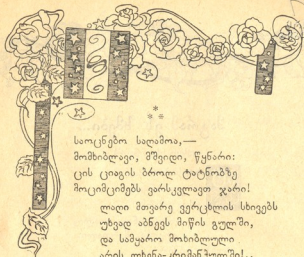 * * *
საოცნებო საღამოა,—
მომხიბლავი, მშვიდი, წყნარი:
ცის ციაგის ბროლ ტატნობზე
მოციმციმებს ვარსკვლავთ ჯარი!
ლაღი მთვარე ვერცხლის სხივებს
უხვად აბნევს მიწის გულში,
და სამყარო მოხიბლული
არის ლხენა-კრიმანჭულში!..